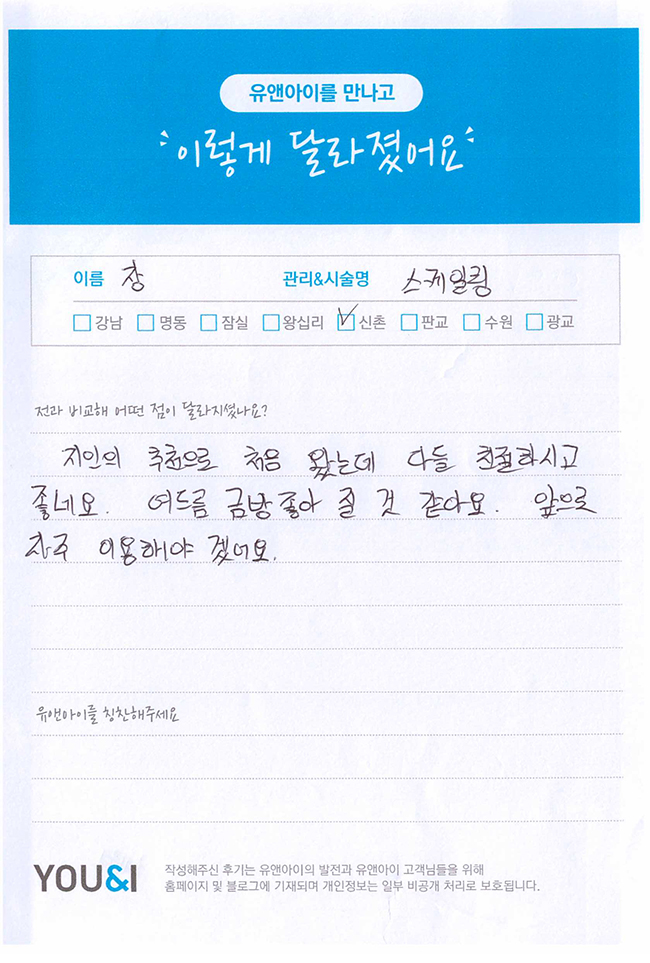 유앤아이를 만나고
이렇게 달라졌어요
이름 장 관리&시술명 스케일링
강남 명동 잠실 왕십리 신촌 판교 수원 광교
전과 비교해 어떤 점이 달라지셨나요?
지인의 추천으로 처음 왔는데 다들 친절하시고
좋네요. 여드름 금방 좋아 질 것 같아요. 앞으로
자주 이용해야 겠어요.
유앤아이를 칭찬해주세요
YOU&I
작성해주신 후기는 유앤아이의 발전과 유앤아이 고객님들을 위해
홈페이지 및 블로그에 기재되며 개인정보는 일부 비공개 처리로 보호됩니다.